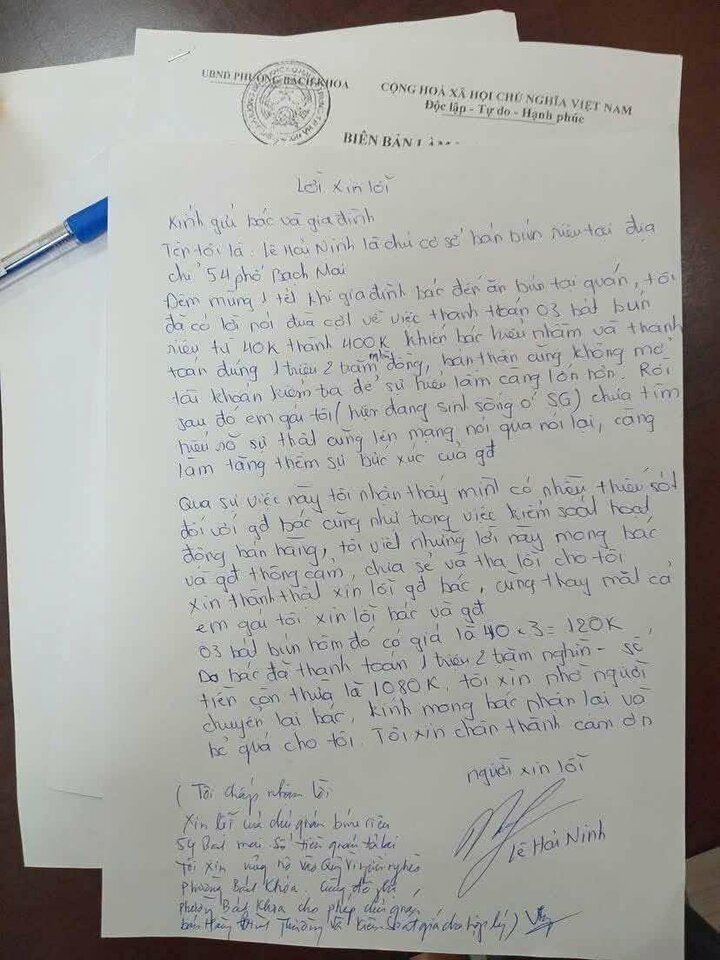 UBND PHƯỜNG BÁCH KHOA
CỘNG HOÀ XÃ HỘI CHỦ NGHĨA VIỆT NAM
Độc lập - Tự do - Hạnh phúc
BIÊN BẢN LÀM
Lời xin lỗi
Kính gửi bác và gia đình
Tên tôi là: Lê Hải Ninh là chủ cơ sở bán bún riêu tại địa
chỉ 54 phố Bạch Mai
Đêm mùng 1 tết khi gia đình bác đến ăn bún tại quán, tôi
đã có lời nói đùa cợt về việc thanh toán 03 bát bún
riêu từ 40K thành 400K khiến bác hiểu nhầm và thanh
toán đúng 1 triệu 2 trăm nghìn đồng, bản thân cũng không mở
tài khoản kiểm tra để sự hiểu lầm càng lớn hơn. Rồi
sau đó em gái tôi (hiện đang sinh sống ở SG) chưa tìm
hiểu rõ sự thật cũng lên mạng nói qua nói lại, càng
làm tăng thêm sự bức xúc của gđ
Qua sự việc này tôi nhận thấy mình có nhiều thiếu sót
đối với gđ bác cũng như trong việc kiểm soát hoạt
động bán hàng, tôi viết những lời này mong bác
và gđ thông cảm, chia sẻ và tha lỗi cho tôi
xin thành thật xin lỗi gđ bác, cũng thay mặt cả
em gái tôi xin lỗi bác và gđ
03 bát bún hôm đó có giá là 40 x 3 = 120K
Do bác đã thanh toán 1 triệu 2 trăm nghìn - số
tiền còn thừa là 1080K, tôi xin nhờ người
chuyển lại bác, kính mong bác nhận lại và
bỏ qua cho tôi. Tôi xin chân thành cảm ơn
người xin lỗi
Lê Hải Ninh
(Tôi chấp nhận lời
xin lỗi của chủ quán bún riêu
54 Bạch mai. Số tiền quán trả lại
Tôi xin ủng hộ vào Quỹ Vì người nghèo
phường Bách Khoa. Cũng
phường Bách Khoa cho phép chủ quán
bán hàng bình thường và kiểm soát giá cho hợp lý)